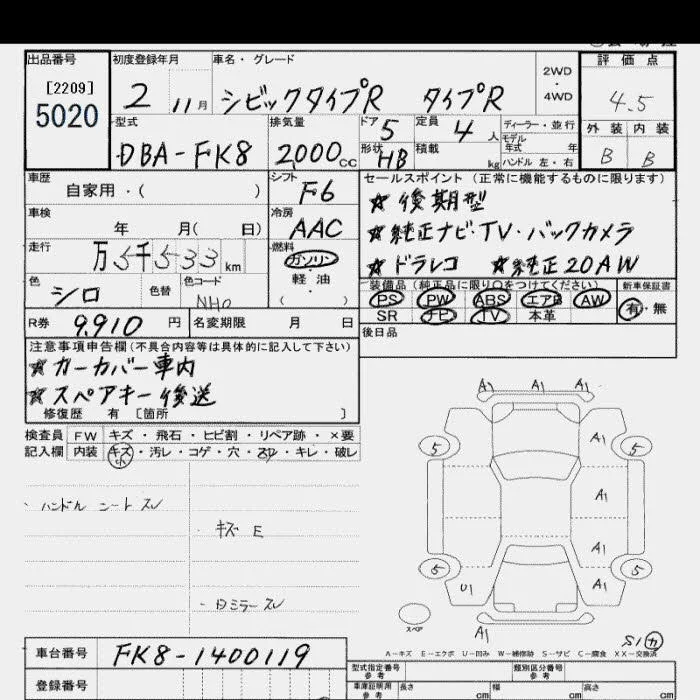 出品番号 初度登録年月 車名・グレード 2WD ・ 4WD 評価点
[2209] 5020 2 11月 シビックタイプR タイプR 4.5
型式 排気量 ドア 5 定員 4人 ディーラー・並行 外装 内装
DBA-FK8 2000cc 形状 HB 積載 kg モデル年式 年 ハンドル 左・右 B B
車歴 シフト F6 セールスポイント(正常に機能するものに限ります)
自家用・( ) ☆後期型
車検 冷房 AAC ☆純正ナビ・TV・バックカメラ
年 月( 日)
走行 万5千533km 燃料 ガソリン ☆ドラレコ ☆純正20AW
色 シロ 色替 色コード 軽油 ・ ( )
装備品(純正品に限り○をつけてください) 新車保証書
PS PW ABS エアB AW 有・無
SR ナビ TV 本革
R券 9,910円 名変期限 月 日 後日品
注意事項申告欄(不具合内容等は具体的に記入して下さい)
☆カーカバー車内
☆スペアキー後送
修復歴 有 [箇所 ]
検査員 FW キズ・飛石・ヒビ割・リペア跡・×要
記入欄 内装 キズ・汚レ・コゲ・穴・スレ・キレ・破レ
ハンドル シート スレ
キズ E
A1 A1 A1
5 A1 5
A1
A1
5 U1 A1 5
スペア A1
A-キズ E-エクボ U-凹み W-補修跡 S-サビ C-腐食 XX-交換済
車台番号 FK8-1400119
登録番号
型式指定番号 参考 類別区分番号 参考
車庫証明用 参考 長さ cm 幅 cm 高さ cm